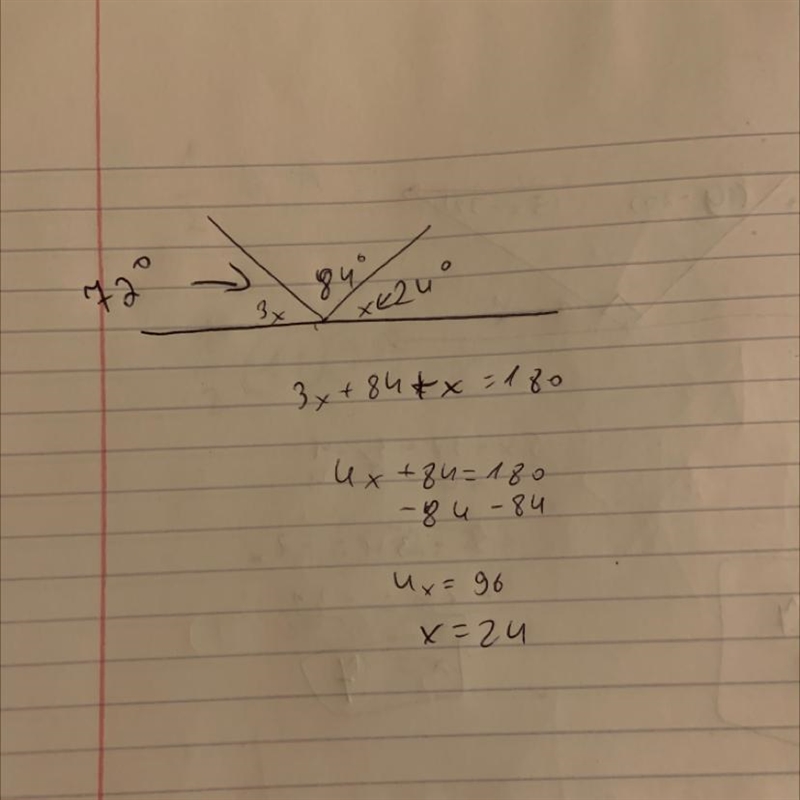 84°
72° → 3x x<24°
3x + 84 + x = 180
4x + 84 = 180
-84 -84
4x = 96
x = 24